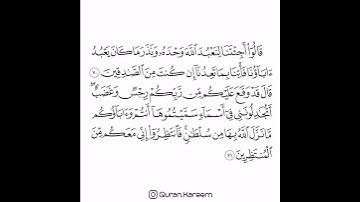 قَالُوٓا۟ أَجِئْتَنَا لِنَعْبُدَ ٱللَّهَ وَحْدَهُۥ وَنَذَرَ مَا كَانَ يَعْبُدُ
ءَابَآؤُنَا فَأْتِنَا بِمَا تَعِدُنَآ إِن كُنتَ مِنَ ٱلصَّٰدِقِينَ ٧٠
قَالَ قَدْ وَقَعَ عَلَيْكُم مِّن رَّبِّكُمْ رِجْسٌ وَغَضَبٌ ۖ
أَتُجَٰدِلُونَنِى فِىٓ أَسْمَآءٍ سَمَّيْتُمُوهَآ أَنتُمْ وَءَابَآؤُكُم
مَّا نَزَّلَ ٱللَّهُ بِهَا مِن سُلْطَٰنٍ ۚ فَٱنتَظِرُوٓا۟ إِنِّى مَعَكُم مِّنَ
ٱلْمُنتَظِرِينَ ٧١
Quran.Kareem